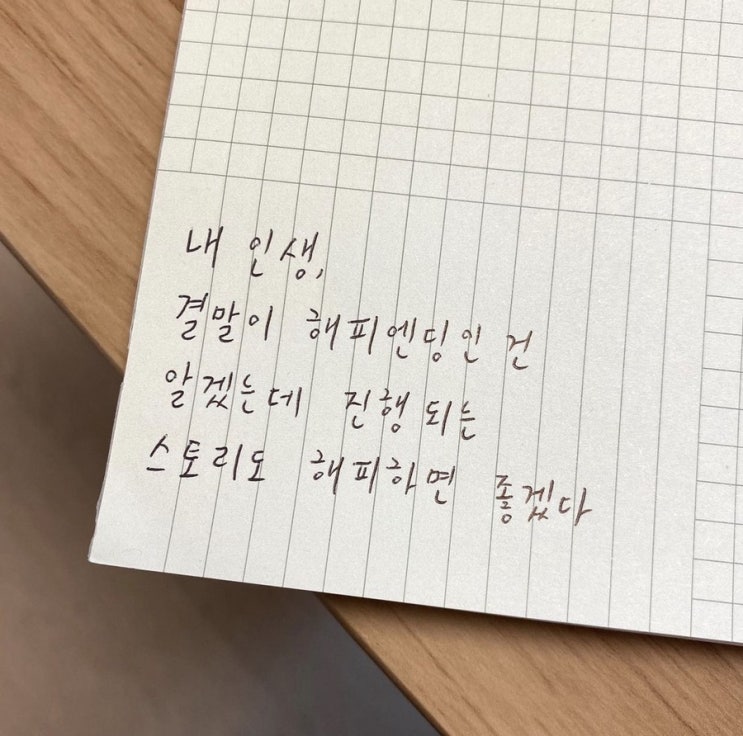 내 인생,
결말이 해피엔딩인 건
알겠는데 진행 되는
스토리도 해피하면 좋겠다